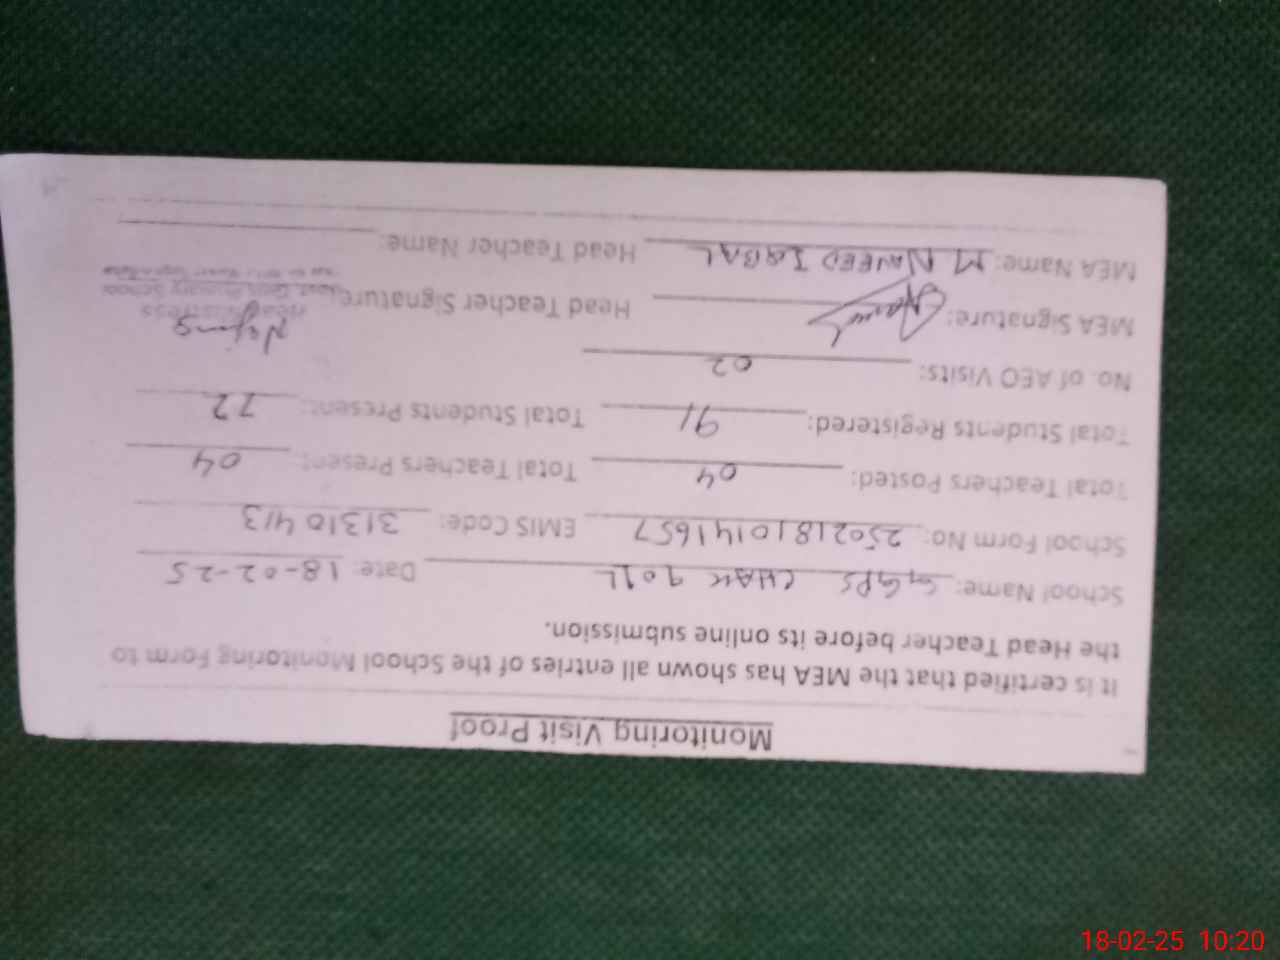 Monitoring Visit Proof
It is certified that the MEA has shown all entries of the School Monitoring Form to
the Head Teacher before its online submission.
School Name: GGPS CHAK 90 1L Date: 18-02-25
School Form No: 250218101411657 EMIS Code: 31310413
Total Teachers Posted: 04 Total Teachers Present: 04
Total Students Registered: 91 Total Students Present: 72
No. of AEO Visits: 02
MEA Signature: Head Teacher Signature:
Headmistress
Govt. Girls Primary School
MEA Name: M NAVEED IQBAL Head Teacher Name:
18-02-25 10:20